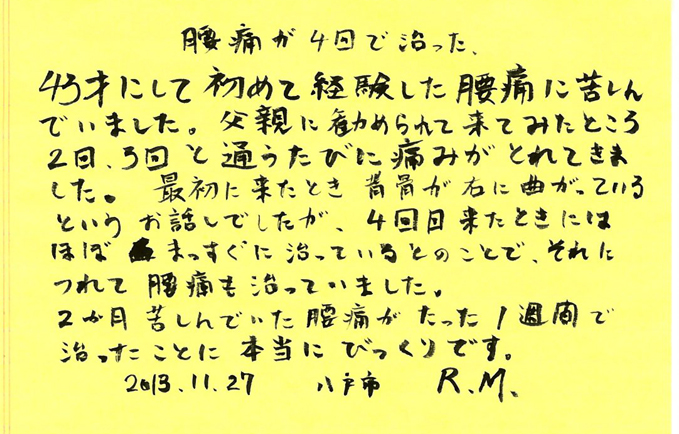 腰痛が4回で治った、
43才にして初めて経験した腰痛に苦しん
でいました。父親に勧められて来てみたところ
2回、3回と通うたびに痛みがとれてきま
した。最初に来たとき背骨が右に曲がっている
というお話しでしたが、4回目来たときには
ほぼまっすぐに治っているとのことで、それに
つれて腰痛も治っていました。
2か月苦しんでいた腰痛がたった1週間で
治ったことに本当にびっくりです。
2013.11.27 八戸市 R.M.